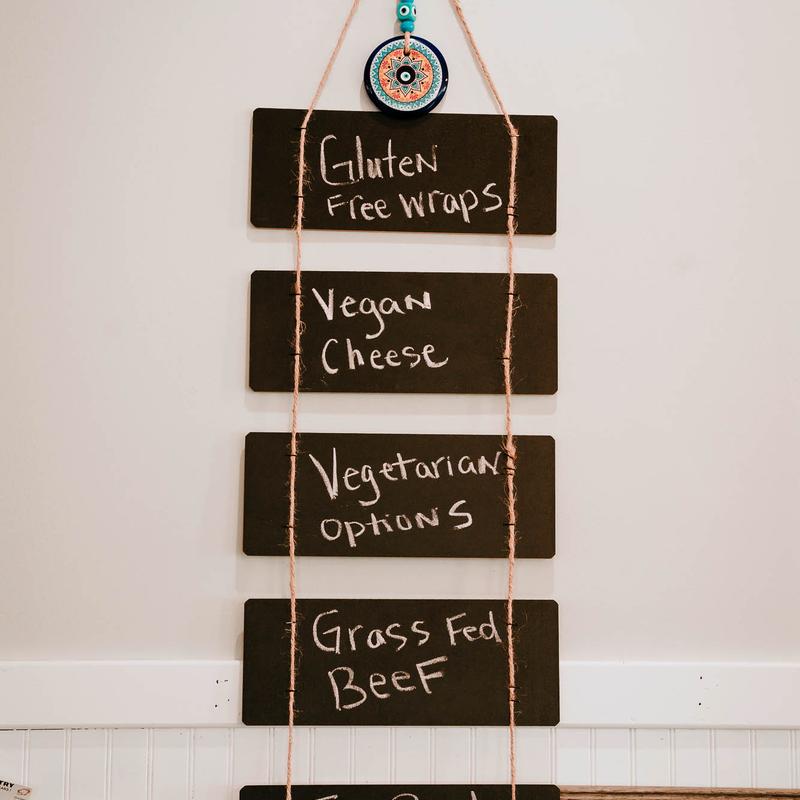 Gluten
Free wraps
Vegan
Cheese
Vegetarian
options
Grass Fed
Beef